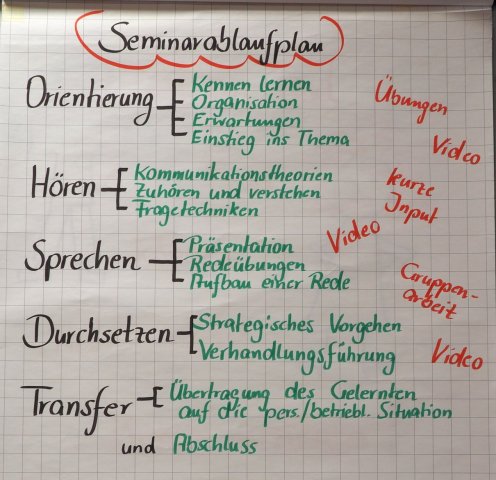 Seminarablaufplan
Orientierung
Kennen lernen
Organisation
Erwartungen
Einstieg ins Thema
Übungen
Video
Hören
Kommunikationstheorien
Zuhören und verstehen
Fragetechniken
kurze
Input
Video
Sprechen
Präsentation
Redeübungen
Aufbau einer Rede
Gruppen-
arbeit
Durchsetzen
Strategisches Vorgehen
Verhandlungsführung
Video
Transfer
Übertragung des Gelernten
auf die pers./betriebl. Situation
und Abschluss